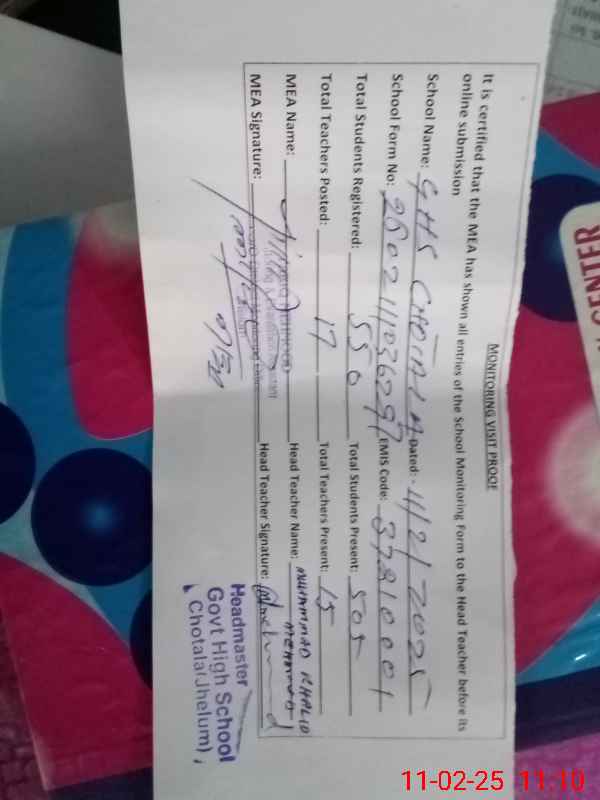 MONITORING VISIT PROOF
It is certified that the MEA has shown all entries of the School Monitoring Form to the Head Teacher before its
online submission
School Name: GHS CHOTALA Dated: 11/2/2025
School Form No: EMIS Code: 37210001
Total Students Registered: 550 Total Students Present: 505
Total Teachers Posted: 17 Total Teachers Present: 15
MEA Name: Head Teacher Name: MUHAMMAD KHALID
MEHMOOD
MEA Signature: Head Teacher Signature:
Headmaster
Govt High School
Chotala(Jhelum)
CENTER
11-02-25 11:10